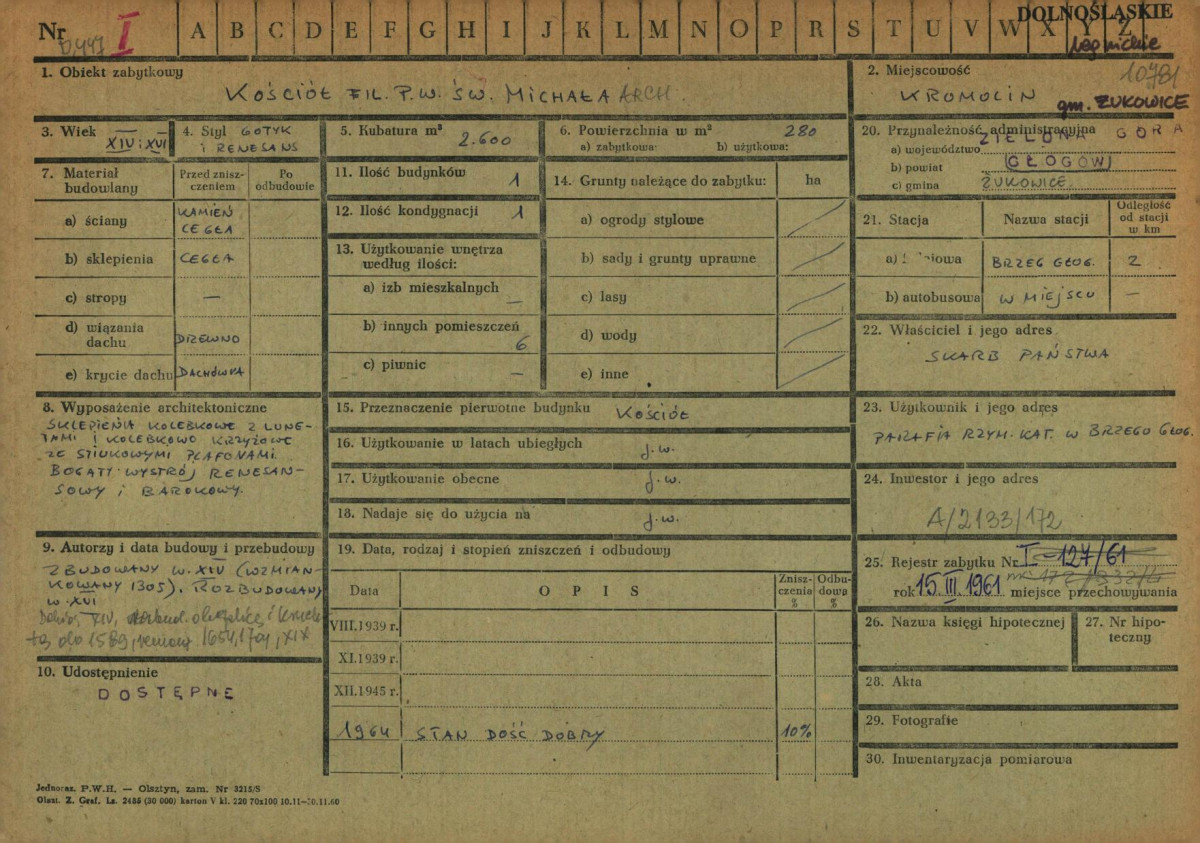 Nr I A B C D E F G H I J K L M N O P R S T U V W X Y Z
DOLNOŚLĄSKIE
legnickie
1. Obiekt zabytkowy
KOŚCIÓŁ FIL. P.W. ŚW. MICHAŁA ARCH.
2. Miejscowość
10781
KROMOLIN gm. ŻUKOWICE
3. Wiek
XIV i XVI
4. Styl GOTYK
i RENESANS
5. Kubatura m³
2.600
6. Powierzchnia w m² 280
a) zabytkowa: b) użytkowa:
7. Materiał budowlany
Przed zniszczeniem
Po odbudowie
a) ściany KAMIEŃ, CEGŁA
b) sklepienia CEGŁA
c) stropy —
d) wiązania dachu DREWNO
e) krycie dachu DACHÓWKA
8. Wyposażenie architektoniczne
SKLEPIENIA KOLEBKOWE Z LUNE-
TAMI I KOLEBKOWO KRZYŻOWE
ZE STIUKOWYMI PLAFONAMI.
BOGATY WYSTRÓJ RENESAN-
SOWY i BAROKOWY.
9. Autorzy i data budowy i przebudowy
ZBUDOWANY W. XIV (WZMIAN-
KOWANY 1305), ROZBUDOWANY
W. XVI
XIV,
do 1589, remont 1654, XIX
10. Udostępnienie
DOSTĘPNE
11. Ilość budynków 1
12. Ilość kondygnacji 1
13. Użytkowanie wnętrza
według ilości:
a) izb mieszkalnych —
b) innych pomieszczeń 6
c) piwnic —
14. Grunty należące do zabytku: ha
a) ogrody stylowe
b) sady i grunty uprawne
c) lasy
d) wody
e) inne
15. Przeznaczenie pierwotne budynku KOŚCIÓŁ
16. Użytkowanie w latach ubiegłych j.w.
17. Użytkowanie obecne j.w.
18. Nadaje się do użycia na j.w.
19. Data, rodzaj i stopień zniszczeń i odbudowy
Data OPIS Zniszczenia % Odbudowa %
VIII.1939 r.
XI.1939 r.
XII.1945 r.
1964 STAN DOŚĆ DOBRY 10%
20. Przynależność administracyjna
a) województwo ZIELONA GÓRA
b) powiat (GŁOGÓW)
c) gmina ŻUKOWICE
21. Stacja Nazwa stacji Odległość od stacji w km
a) BRZEG GŁOG. 2
b) autobusowa W MIEJSCU —
22. Właściciel i jego adres
SKARB PAŃSTWA
23. Użytkownik i jego adres
PARAFIA RZYM. KAT. W BRZEGO GŁOG.
24. Inwestor i jego adres
A/2133/172
25. Rejestr zabytku Nr I-127/61
rok 15 III. 1961 miejsce przechowywania
26. Nazwa księgi hipotecznej
27. Nr hipoteczny
28. Akta
29. Fotografie
30. Inwentaryzacja pomiarowa
Jednoraz. P.W.H. — Olsztyn, zam. Nr 3215/S
Olszt. Z. Graf. Lz. 2485 (30 000) karton V kl. 220 70x100